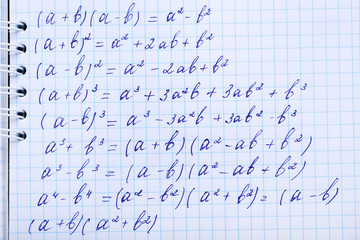 (a+b)(a-b) = a²-b²
(a+b)² = a²+2ab+b²
(a-b)² = a²-2ab+b²
(a+b)³ = a³+3a²b+3ab²+b³
(a-b)³ = a³-3a²b+3ab²-b³
a³+b³ = (a+b)(a²-ab+b²)
a³-b³ = (a-b)(a²-ab+b²)
a⁴-b⁴ = (a²-b²)(a²+b²) = (a-b)
(a+b)(a²+b²)